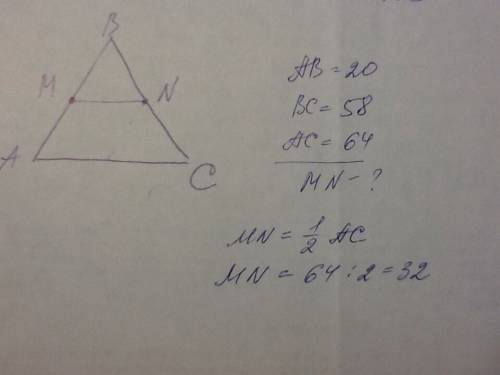 B
M N
A C
AB = 20
BC = 58
AC = 64
MN - ?
MN = 1/2 AC
MN = 64 : 2 = 32